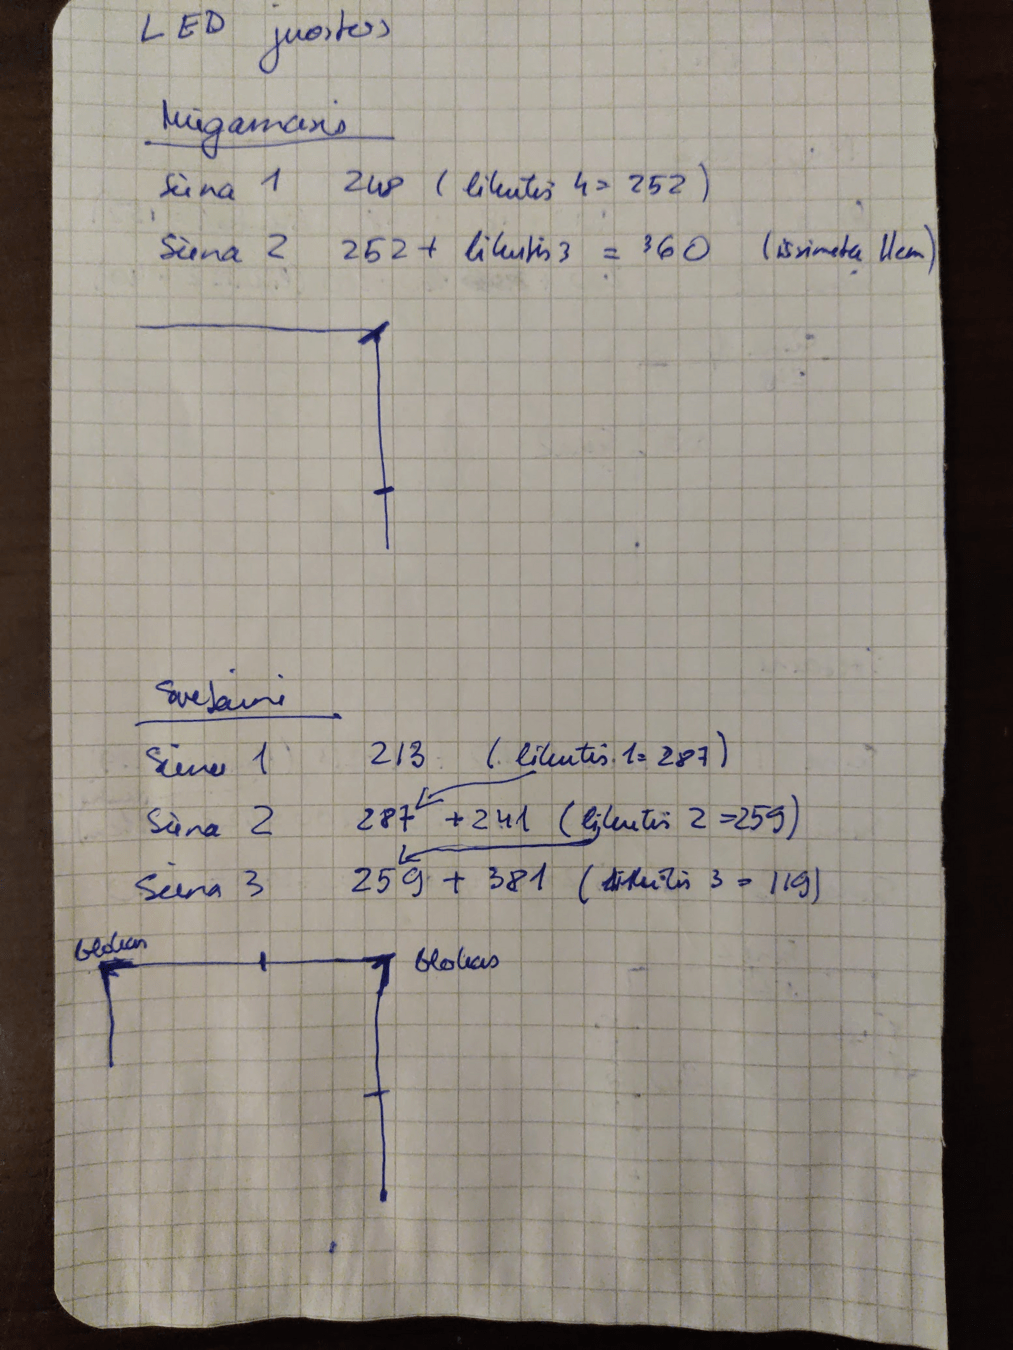 LED juostos
Miegamasis
Siena 1 248 ( likutis 4 = 252 )
Siena 2 252 + likutis 3 = 360 (išsimeta 11cm)
Svetainė
Siena 1 213 ( likutis 1 = 287 )
Siena 2 287 + 241 ( likutis 2 = 259 )
Siena 3 259 + 381 ( likutis 3 = 119 )
blokas blokas